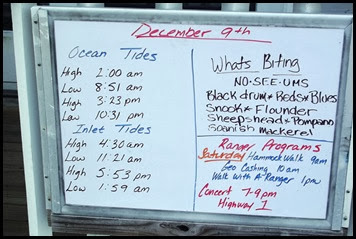 December 9th
Ocean Tides
High 2:00 am
Low 8:51 am
High 3:23 pm
Low 10:31 pm
Inlet Tides
High 4:30 am
Low 11:21 am
High 5:53 pm
Low 1:59 am
Whats Biting
NO-SEE-UMS
Black drum * Reds * Blues
Snook * Flounder
Sheepshead * Pompano
Spanish Mackerel
Ranger Programs
Saturday Hammock Walk 9am
Geo Cashing 10am
Walk With A Ranger 1pm
Concert 7-9pm
Highway 1